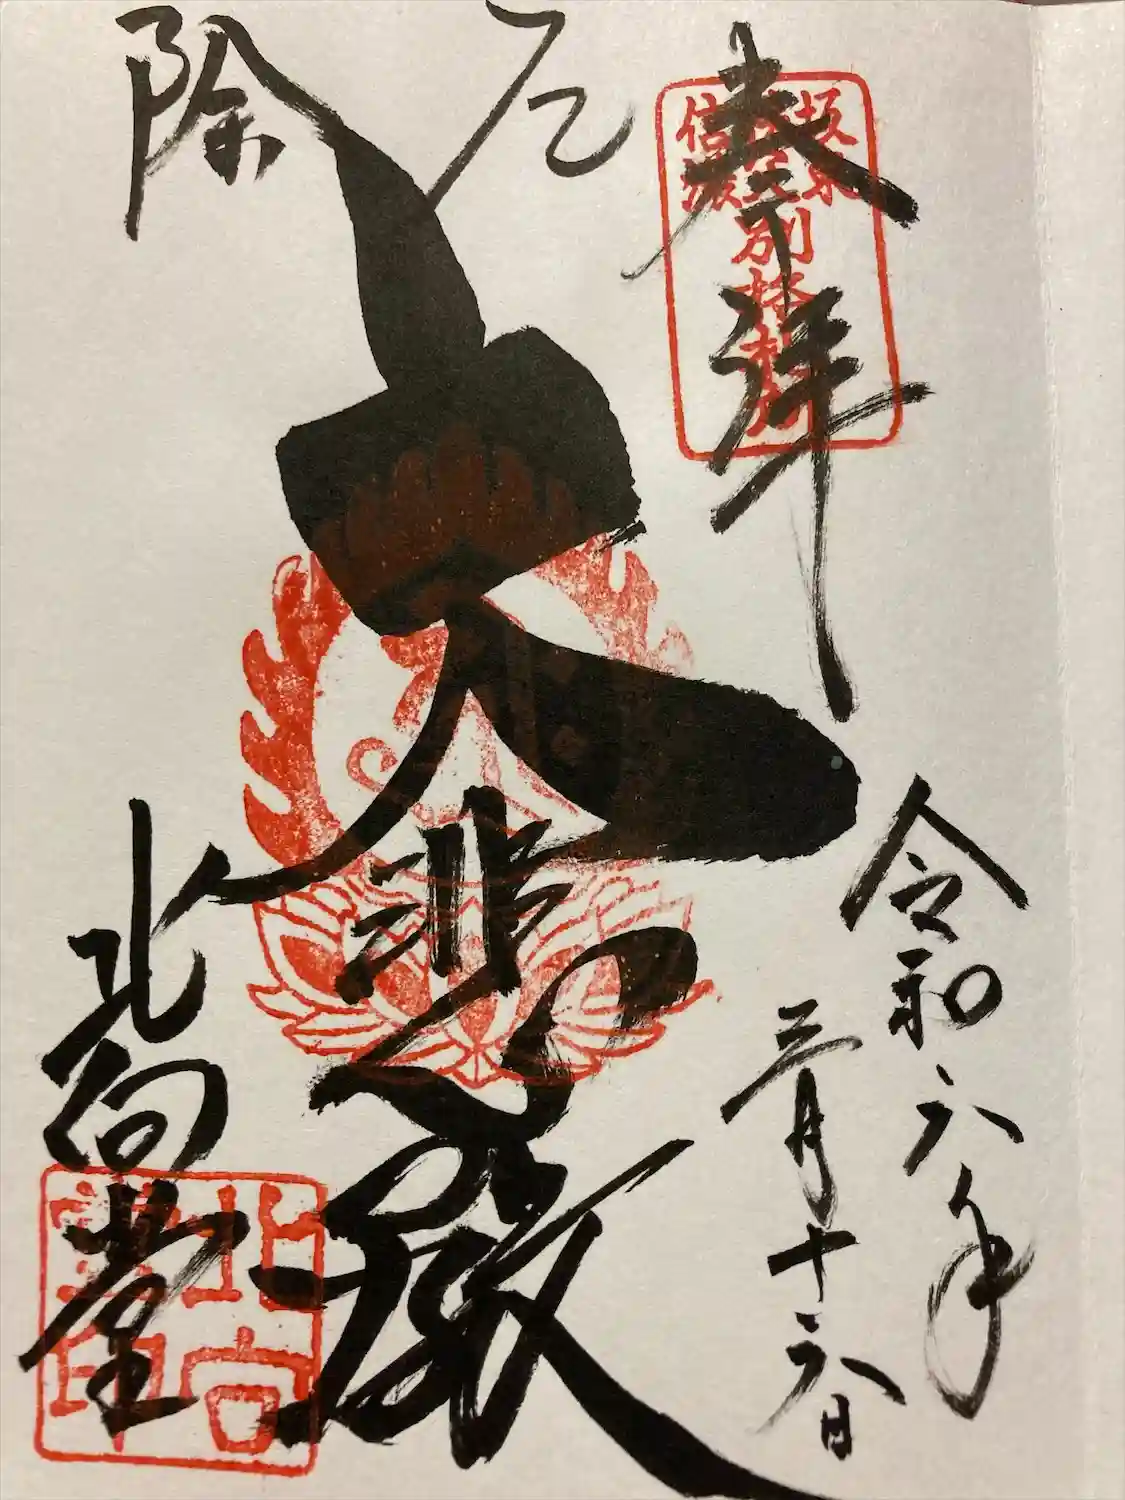 奉拝
坂東
信濃
別格札所
令和六年
三月十六日
厄除
大悲殿
北向堂
北向
堂印